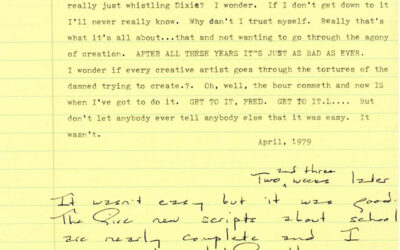 really just whistling Dixie? I wonder. If I don't get down to it
I'll never really know. Why can't I trust myself. Really that's
what it's all about...that and not wanting to go through the agony
of creation. AFTER ALL THESE YEARS IT'S JUST AS BAD AS EVER.
I wonder if every creative artist goes through the tortures of the
damned trying to create.?. Oh, well, the hour commeth and now IS
when I've got to do it. GET TO IT, FRED. GET TO IT.L.... But
don't let anybody ever tell anybody else that it was easy. It
wasn't.
April, 1979
and three
Two weeks later
It wasn't easy but it was good.
The five new scripts about school
are nearly complete and I